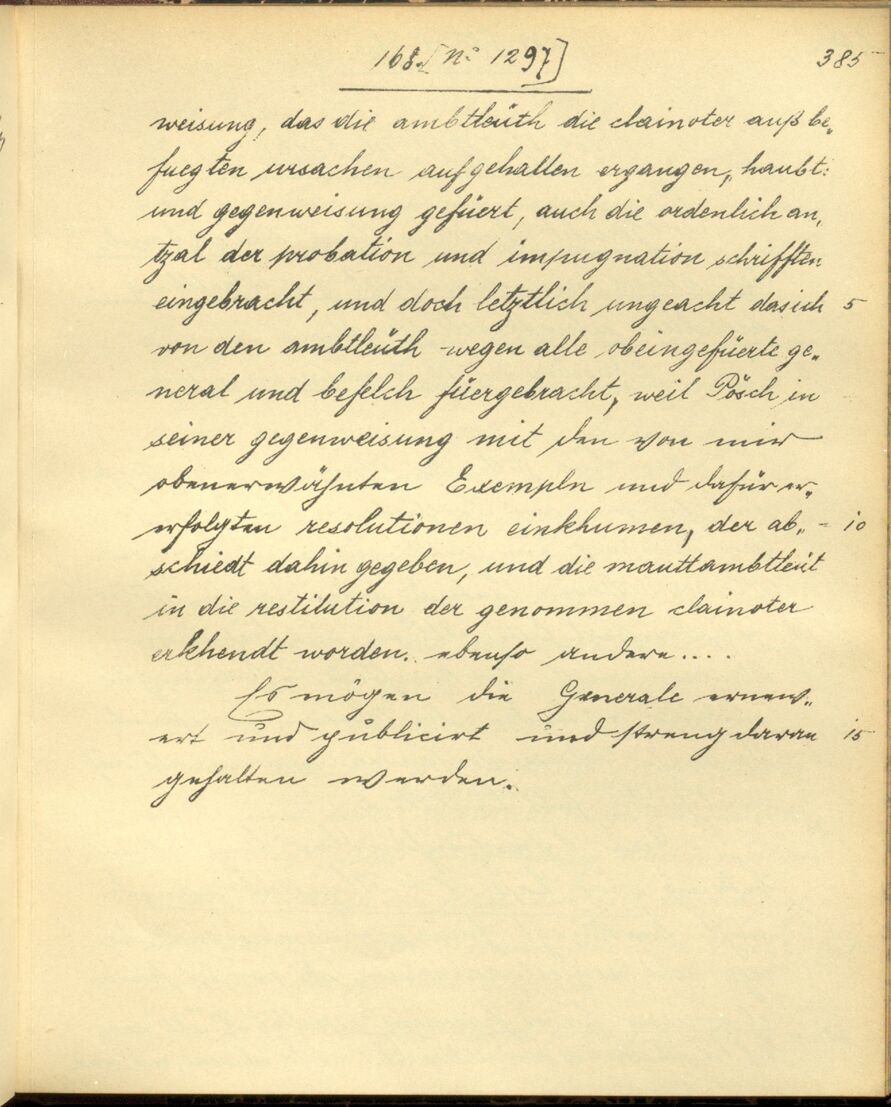 168. [No 1297]
385
weisung, das die ambtleüth die clainoter auß be„
fuegten ursachen aufgehalten ergangen, haubt:
und gegenweisung gefüert, auch die ordenlich an„
tzal der probation und impugnation schrifften
eingebracht, und doch letztlich ungeacht das ich 5
von den ambtleüth wegen alle obeingefüerte ge„
neral und befelch füergebracht, weil Pösch in
seiner gegenweisung mit den von mir
obenerwähnten Exempln und dafür er„
erfolgten resolutionen einkhumen, der ab„ 10
schiedt dahin gegeben, und die mauttambtleüt
in die restitution der genommen clainoter
erkhendt worden. ebenso andere....
Es mögen die Generale ernew„
ert und publicirt und streng daran 15
gehalten werden.